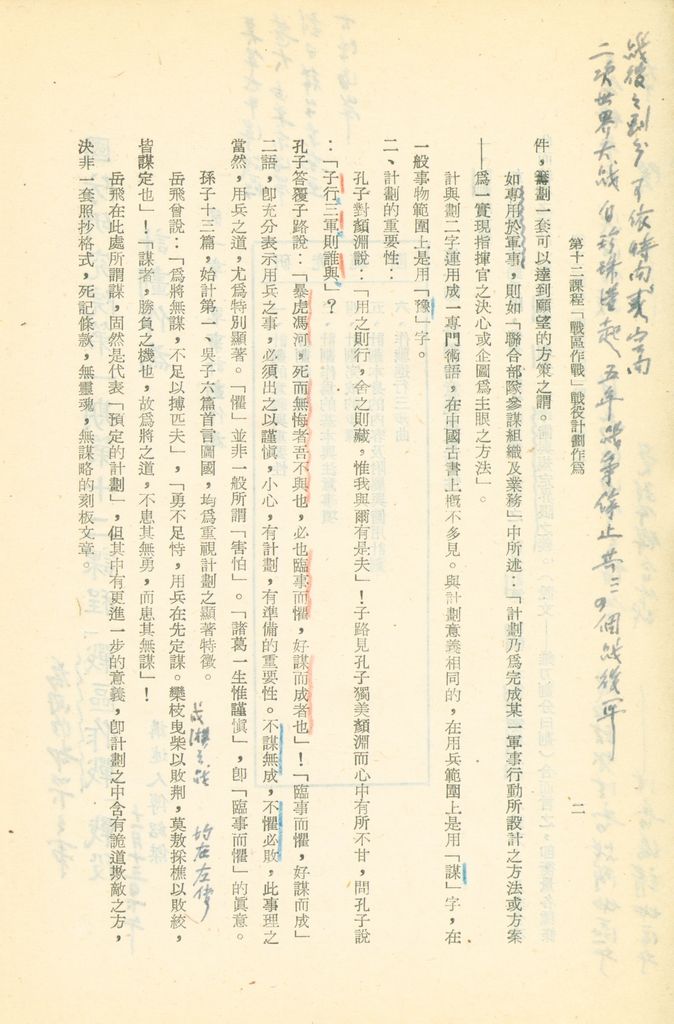 戰後之劃分可依時間或空間
二次世界大战自珍珠港起五年战争停止共三〇個战役
第十二課程「戰區作戰」戰役計劃作爲
二
件，籌劃一套可以達到願望的方策之謂。
如專用於軍事，則如「聯合部隊參謀組織及業務」中所述：「計劃乃爲完成某一軍事行動所設計之方法或方案
——爲一實現指揮官之決心或企圖爲主眼之方法」。
計與劃二字連用成一專門術語，在中國古書上概不多見。與計劃意義相同的，在用兵範圍上是用「謀」字，在
一般事物範圍上是用「豫」字。
二、計劃的重要性：
孔子對顏淵說：「用之則行，舍之則藏，惟我與爾有是夫」！子路見孔子獨美顏淵而心中有所不甘，問孔子說
：「子行三軍則誰與」？
孔子答覆子路說：「暴虎馮河，死而無悔者吾不與也，必也臨事而懼，好謀而成者也」！「臨事而懼，好謀而成」
二語，卽充分表示用兵之事，必須出之以謹愼，小心，有計劃，有準備的重要性。不謀無成，不懼必敗，此事理之
當然，用兵之道，尤爲特別顯著。「懼」並非一般所謂「害怕」。「諸葛一生惟謹愼」，卽「臨事而懼」的眞意。
孫子十三篇，始計第一、吳子六篇首言圖國，均爲重視計劃之顯著特徵。
战 均在左傳
岳飛曾說：「爲將無謀，不足以搏匹夫」，「勇不足恃，用兵在先定謀。欒枝曳柴以敗荆，莫敖採樵以敗絞，
皆謀定也」！「謀者，勝負之機也，故爲將之道，不患其無勇，而患其無謀」！
岳飛在此處所謂謀，固然是代表「預定的計劃」，但其中有更進一步的意義，卽計劃之中含有詭道欺敵之方，
決非一套照抄格式，死記條款，無靈魂，無謀略的刻板文章。